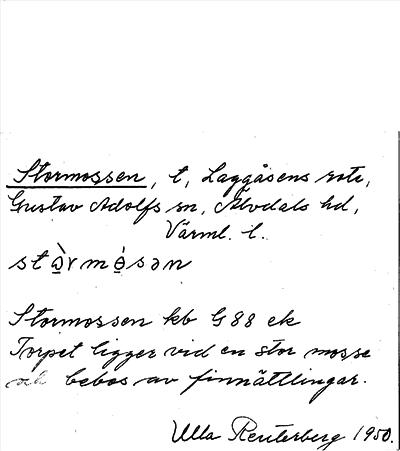 Stormossen, t, Laggåsens rote,
Gustav Adolfs sn, Älvdals hd,
Värml. l.
Stormossen kb G 88 ek
Torpet ligger vid en stor mosse
och bebos av finnättlingar.
Ulla Reuterberg 1950.